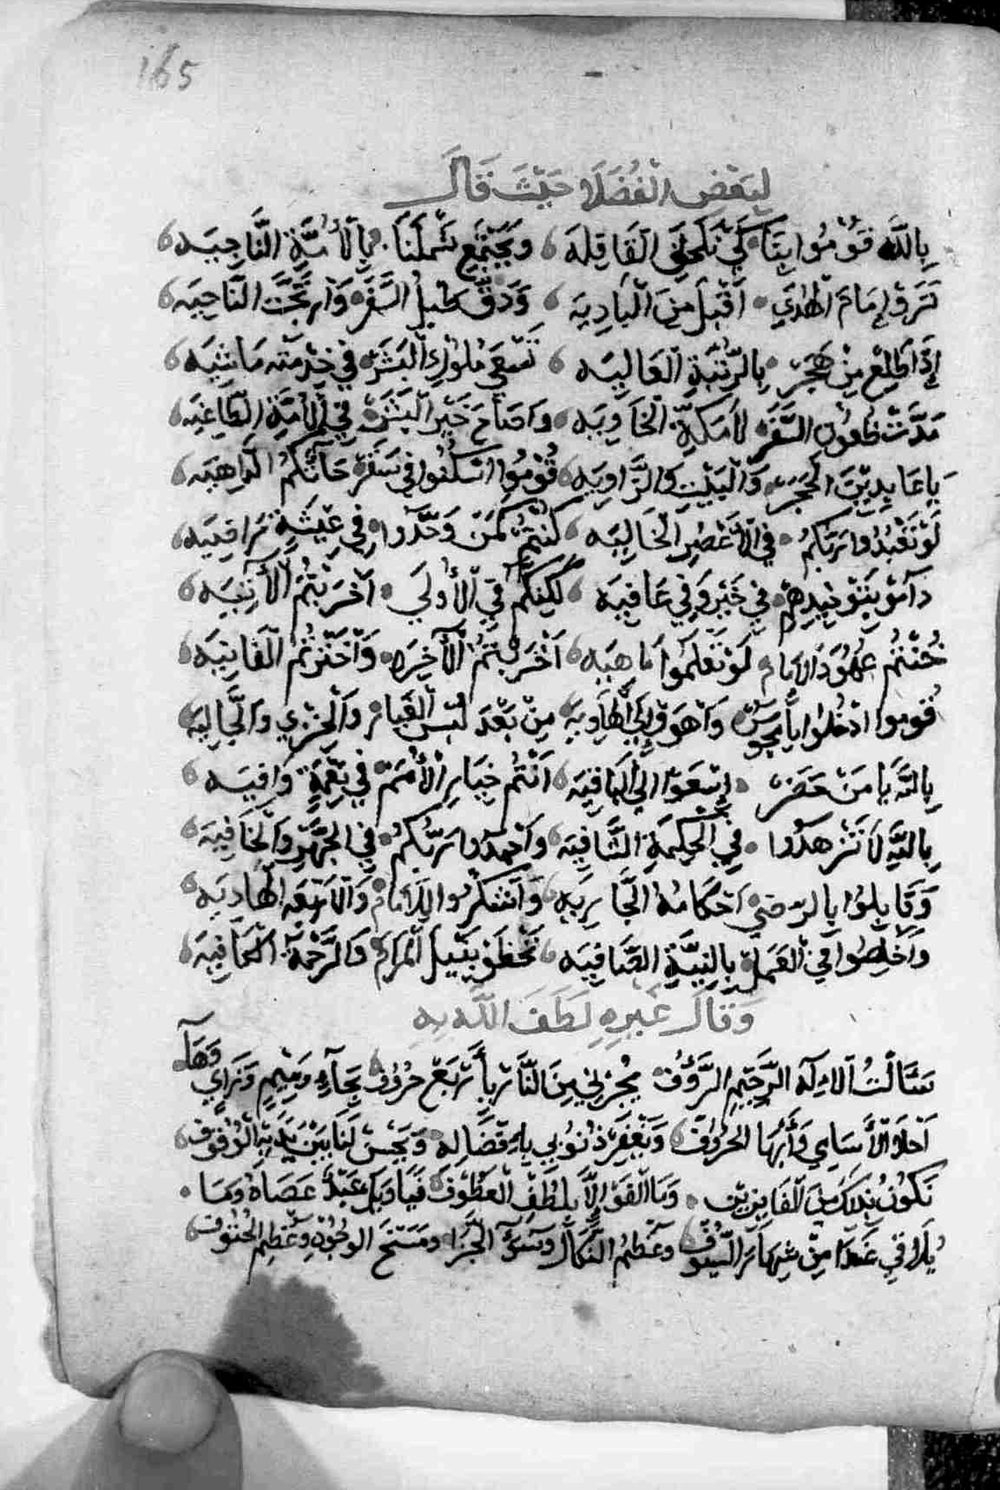 165
لبعض الفضلا حيث قال
بالله قوموا بنا كي نلحق القافله ويجتمع شملنا بالأمة الناجيه
ترى امام الهدي اقبل من الباديه ودق طبل السفر وارتجت الناحيه
إذا طلع من هجر بالرتبة العاليه تسعي ملوك البشر في خدمته ماشيه
مدت ظعون السفر لأمكة الخاويه وصاح خير البشر في الأمة الطاغيه
يا عابدين الحجر والبيت والزاويه قوموا اسكنوا في سقر جاتكم الداهيه
لو تعبدوا ربكم في الأعصر الخاليه كنتم كمن وحدوا في عيشة راقيه
دامو بتوحيدهم في خير وفي عافيه لكنكم في الأولى اخربتم الآنيه
خنتم عهود الامام لو تعلموا ما هيه اخربتم الآخره واخترتم الفانيه
قوموا ادخلوا يا مجوس واهووا الى الهاويه من بعد لبس الغيار والخزي والجاليه
بالله يا من حضر إسعوا الى الكافيه انتم خيار الأمم في نعمة وافيه
بالله لا تزهدوا في الحكمة الشافيه واحمدوا ربكم في الجهر والخافيه
وقابلوا بالرضى احكامه الجاريه واشكروا للامام والاربعه الهاديه
واخلصوا في العمل بالنية الصافيه تحظو بنيل المرام والرحمة الكافيه
وقال غيره لطف الله به
سالت الاله الرحيم الرؤف يجرني من النار بأربع حروف بحآء وميم وراي وهآ
احلا الأسامي وأبها الحروف ويغفر ذنوبي بافضاله ويحسن لنا بين يديه الوقوف
نكون بذلك من الفايزين وما الفوز إلا بلطف العطوف فيا ويل عبد عصاه وما
يلاقي غدا من شهار السيوف وعظم النكال وسوء الجزا ومسخ الوجوه وعظم الحتوف